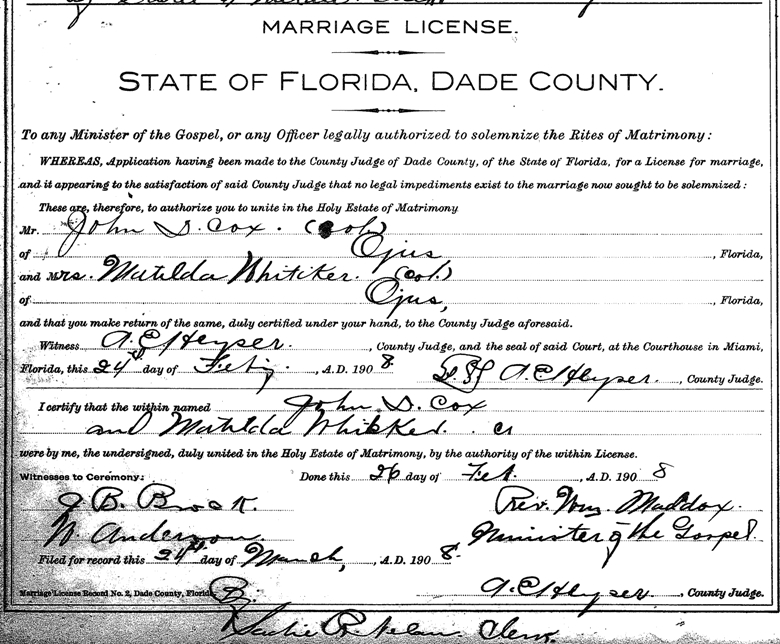 MARRIAGE LICENSE.
STATE OF FLORIDA, DADE COUNTY.
To any Minister of the Gospel, or any Officer legally authorized to solemnize the Rites of Matrimony:
WHEREAS, Application having been made to the County Judge of Dade County, of the State of Florida, for a License for marriage,
and it appearing to the satisfaction of said County Judge that no legal impediments exist to the marriage now sought to be solemnized:
These are, therefore, to authorize you to unite in the Holy Estate of Matrimony
Mr. John D. Cox. (col.)
of Ojus, Florida,
and Mrs. Matilda Whitiker. (col.)
of Ojus, , Florida,
and that you make return of the same, duly certified under your hand, to the County Judge aforesaid.
Witness A. E. Heyser. , County Judge, and the seal of said Court, at the Courthouse in Miami,
Florida, this 24th day of Feb'y. , A.D. 1908. A. E. Heyser. , County Judge.
I certify that the within named John. D. Cox
and Matilda Whitiker.
were by me, the undersigned, duly united in the Holy Estate of Matrimony, by the authority of the within License.
Witnesses to Ceremony: Done this 26 day of Feb. , A.D. 1908
J. B. Brook. Rev. Wm. Maddox.
N. Anderson. Minister of the Gospel.
Filed for record this 24th day of March, , A.D. 1908.
A. E. Heyser , County Judge.
Marriage License Record No. 2, Dade County, Florida. By
Clerk